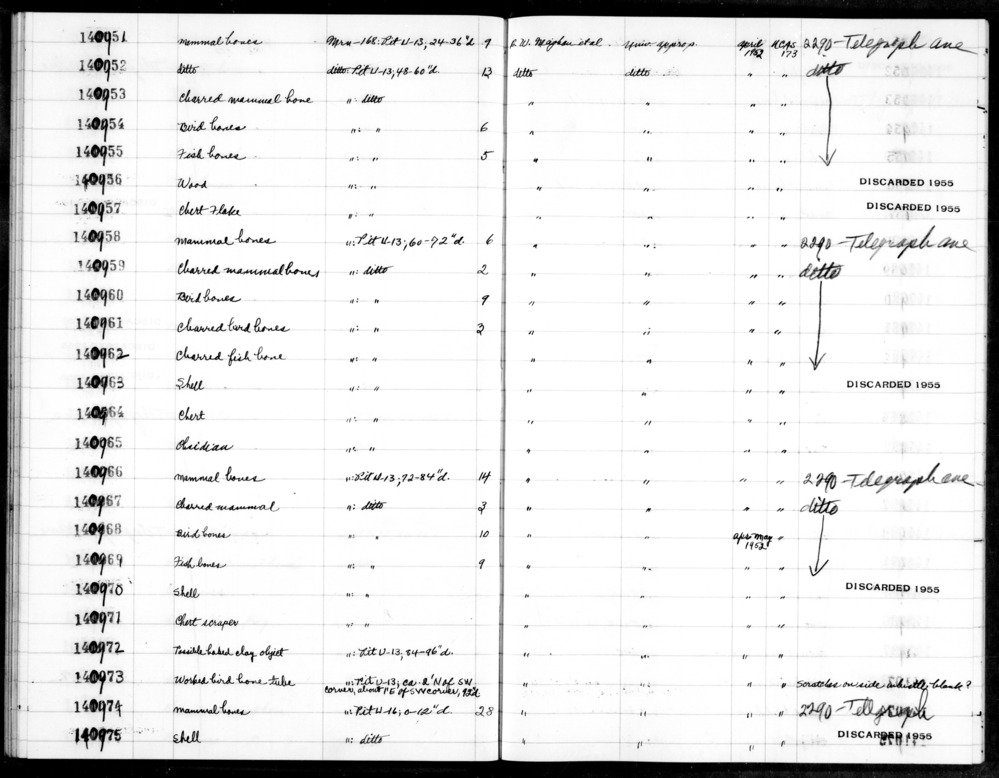 140951 mammal bones Mrn-168: Pit U-13, 24-36"d 9 univ. approp. April 1952 UCAS 173 2290-Telegraph ave
140952 ditto ditto Pit U-13; 48-60"d. 13 ditto ditto " " ditto
140953 Charred mammal bone ": ditto " " " "
140954 Bird bones ": " 6 " " " "
140955 Fish bones ": " 5 " " " "
140956 Wood ": " " " " " DISCARDED 1955
140957 Chert Flake ": " " " " " DISCARDED 1955
140958 mammal bones ": Pit U-13; 60-72"d. 6 " " " " 2290-Telegraph ave
140959 Charred mammal bones ": ditto 2 " " " " ditto
140960 Bird bones ": " 9 " " " "
140961 Charred bird bones ": " 3 " " " "
140962 Charred fish bone ": " " " " "
140963 Shell ": " " " " " DISCARDED 1955
140964 Chert ": " " " " "
140965 Obsidian ": " " " " "
140966 mammal bones ": Pit U-13; 72-84"d. 14 " " " " 2290-Telegraph ave
140967 Charred mammal ": ditto 3 " " " " ditto
140968 Bird bones ": " 10 " " Apr-May 1952 "
140969 Fish bones ": " 9 " " " "
140970 Shell ": " " " " " DISCARDED 1955
140971 Chert scraper ": " " " " "
140972 Possible baked clay object ": Pit U-13; 84-96"d. " " " "
140973 Worked bird bone tube ": Pit U-13; ca. 2' N of SW " " " " Scratches on side whistle blank?
corner, about 1' E of SW corner,
140974 mammal bones ": Pit U-16; 0-12"d. 28 " " " " 2290-Telegraph
140975 Shell ": ditto " " " " DISCARDED 1955